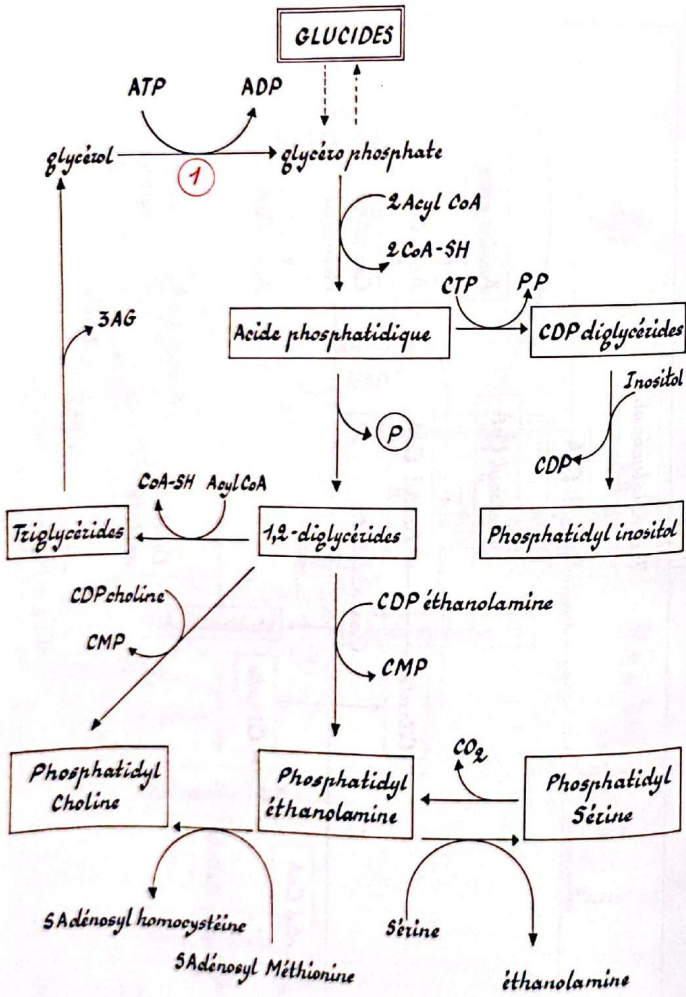 GLUCIDES
ATP
ADP
glycérol
1
glycéro phosphate
2 Acyl CoA
2 CoA-SH
CTP
PP
3AG
Acide phosphatidique
CDP diglycérides
Inositol
P
CDP
CoA-SH
Acyl CoA
Triglycérides
1,2-diglycérides
Phosphatidyl inositol
CDP choline
CDP éthanolamine
CMP
CMP
CO2
Phosphatidyl
Choline
Phosphatidyl
éthanolamine
Phosphatidyl
Sérine
SAdénosyl homocystéine
SAdénosyl Méthionine
Sérine
éthanolamine